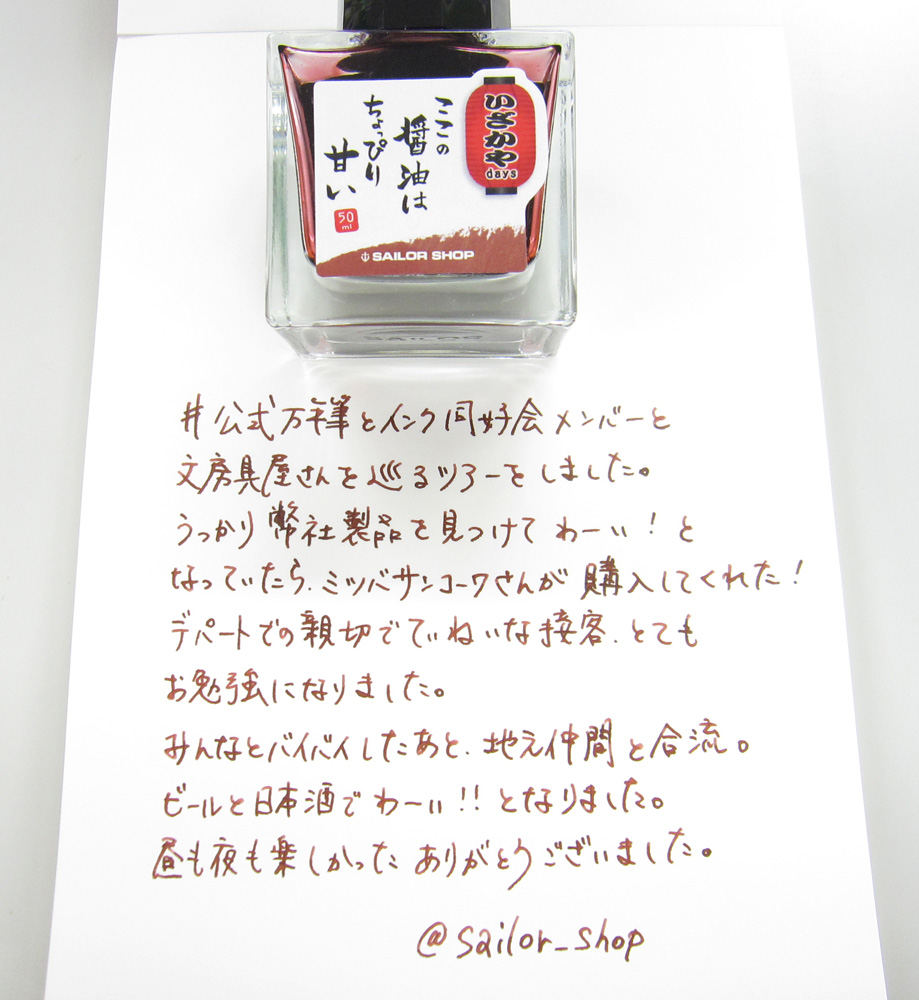 いざかや
days
ここの
醤油は
ちょっぴり
甘い
50
ml
SAILOR SHOP
SAILOR
#公式万年筆とインク同好会メンバーと
文房具屋さんを巡るツアーをしました。
うっかり弊社製品を見つけてわーい!と
なっていたら、ミツバサンコーワさんが購入してくれた!
デパートでの親切でていねいな接客、とても
お勉強になりました。
みんなとバイバイしたあと、地元仲間と合流。
ビールと日本酒でわーい!!となりました。
昼も夜も楽しかった ありがとうございました。
@sailor_shop